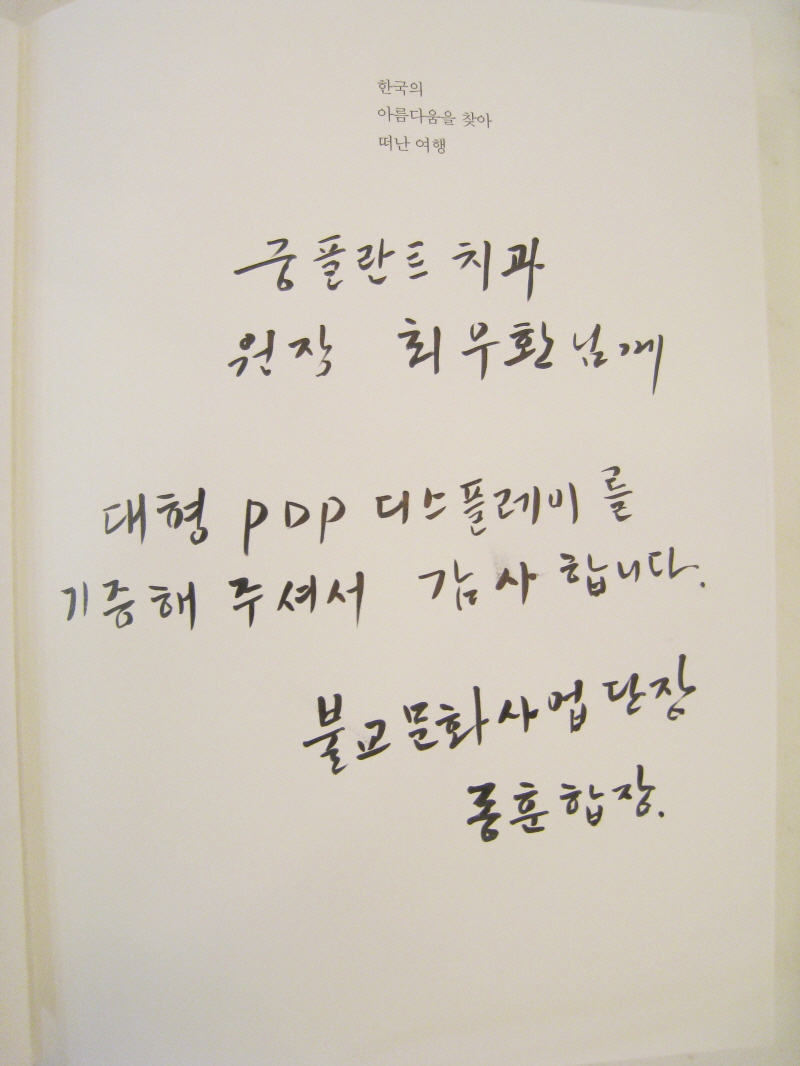 한국의
아름다움을 찾아
떠난 여행
궁플란트 치과
원장 최우환님께
대형 PDP 디스플레이를
기증해 주셔서 감사합니다.
불교문화사업단장
종훈합장.